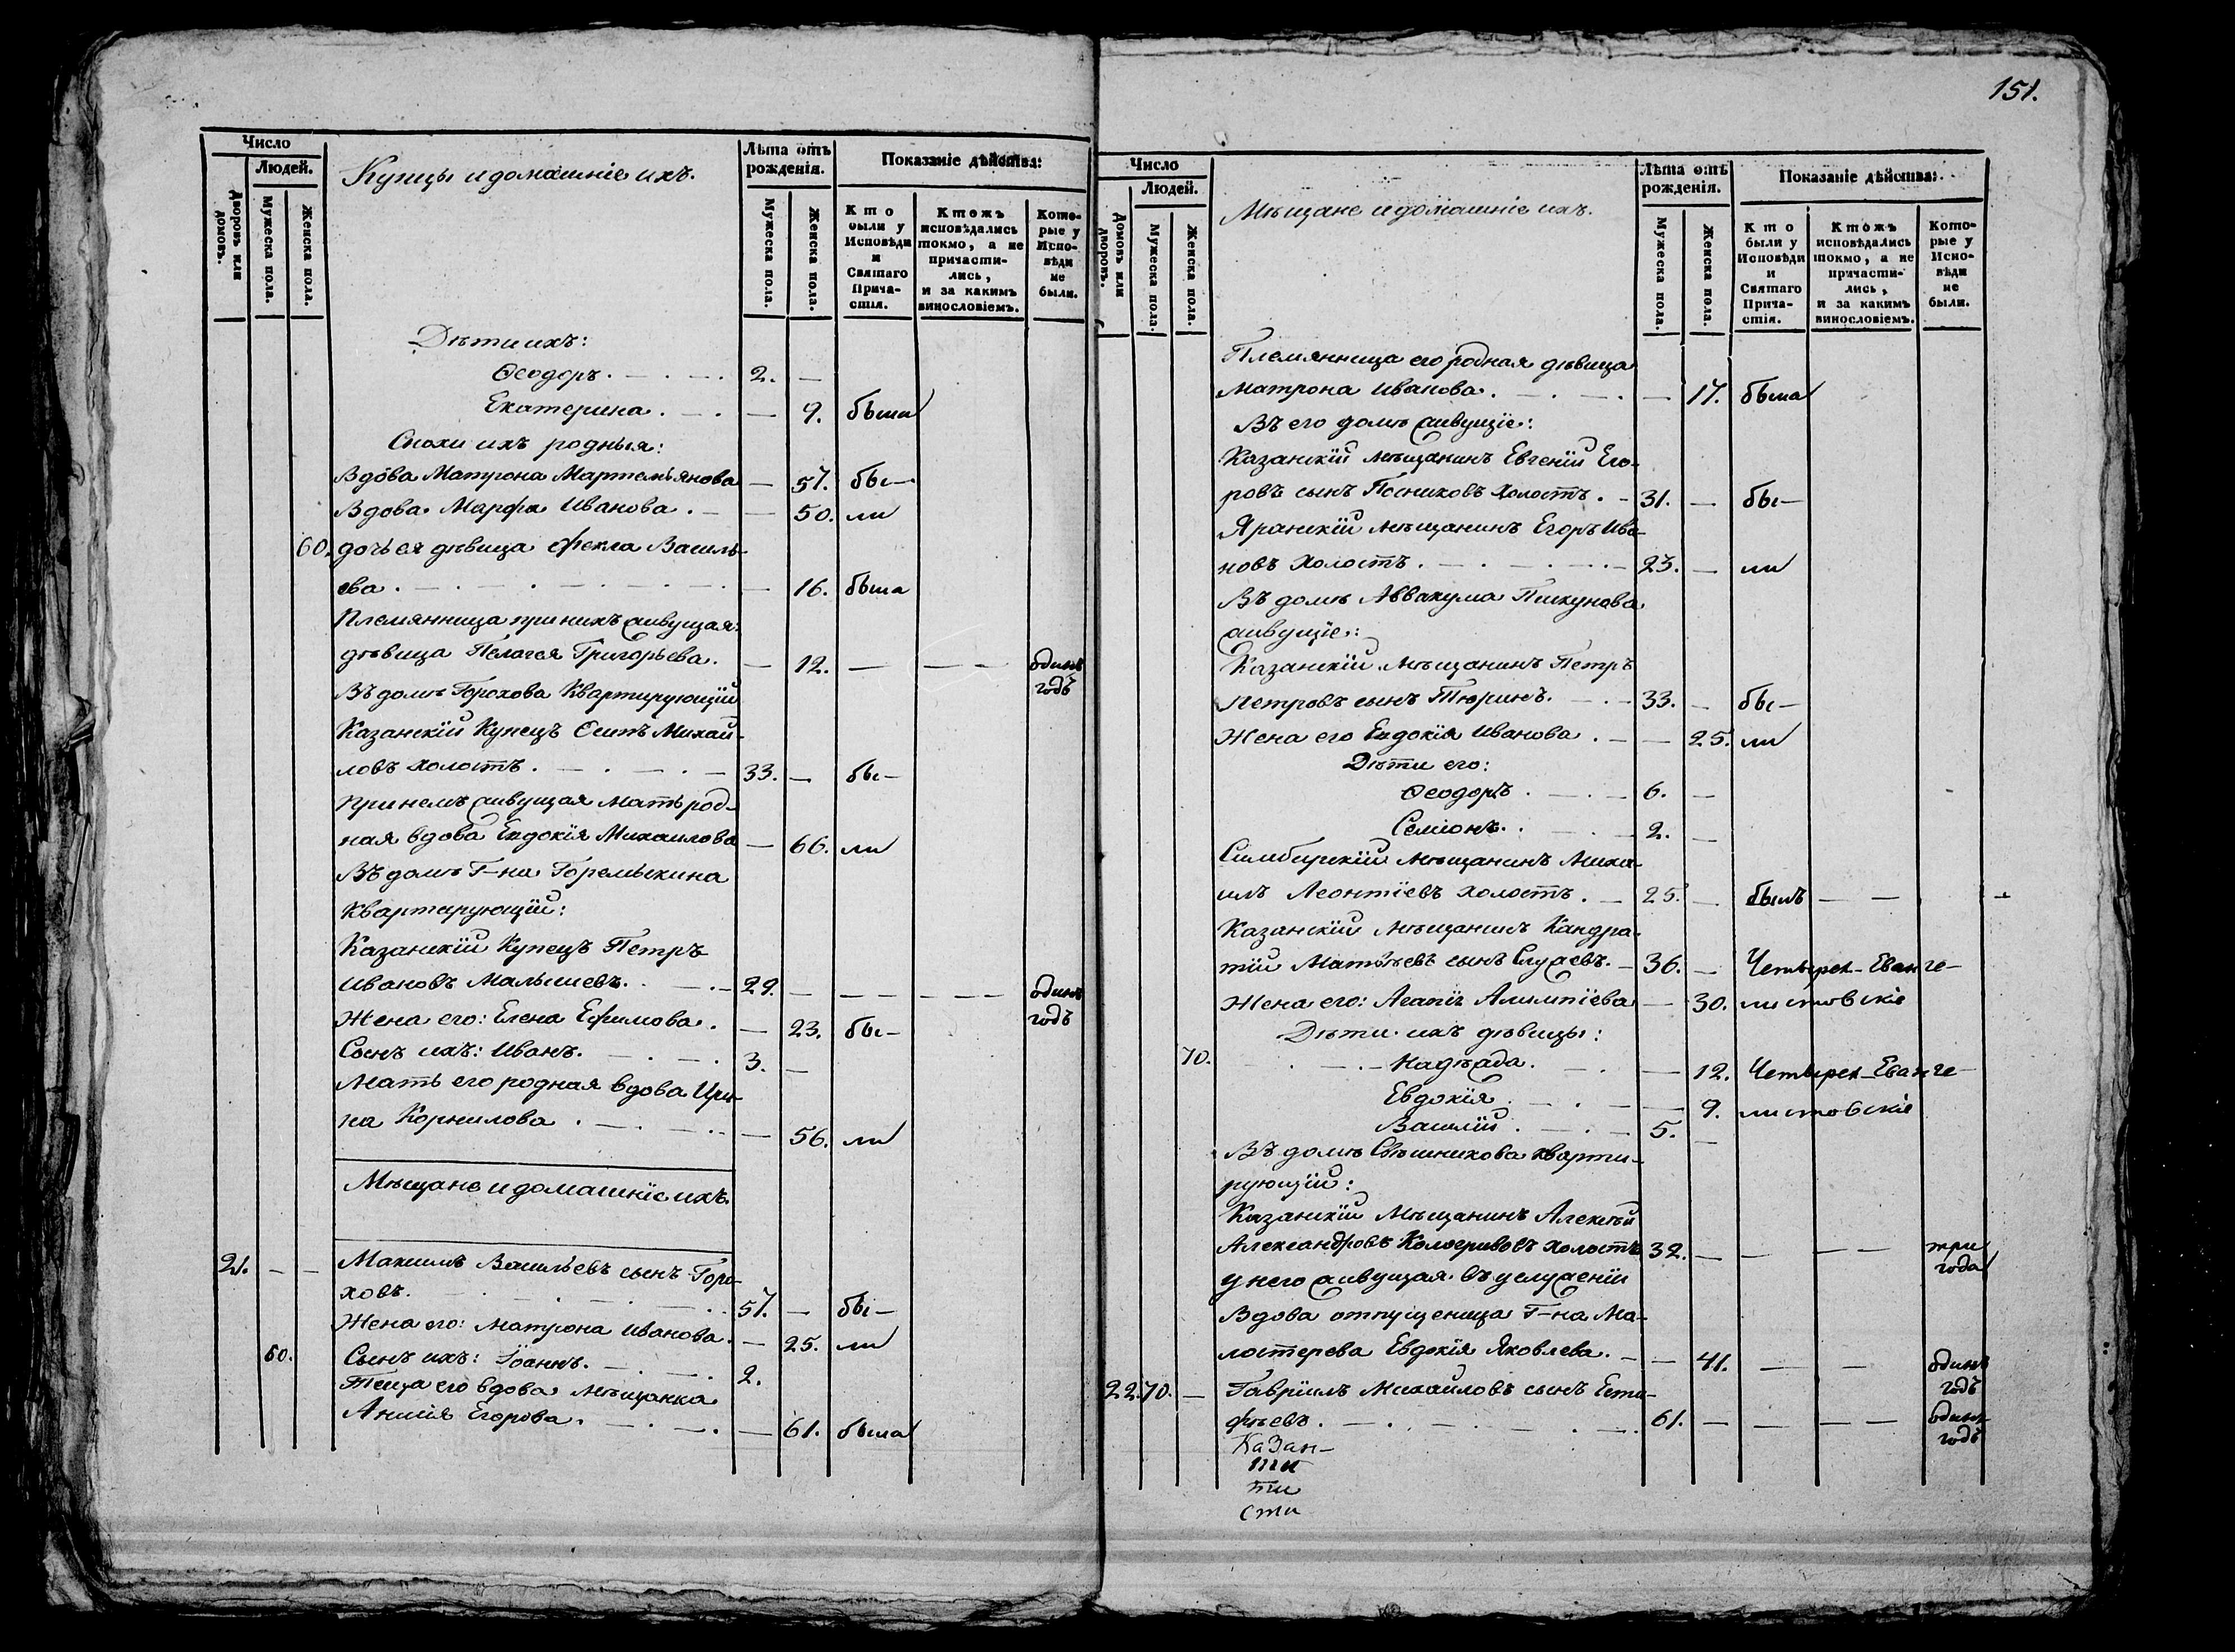 151.
Число
Людей.
Дворовъ или домовъ.
Мужеска пола.
Женска пола.
Купцы и домашніе ихъ.
Лѣта отъ рожденія.
Мужеска пола.
Женска пола.
Показаніе дѣйства:
Кто были у Исповѣди и Святаго Прича-стія.
Ктожъ исповѣдались токмо, а не причасти-лись, и за какимъ винословіемъ.
Кото-рые у Испо-вѣди не были.
Дѣти ихъ:
Ѳеодоръ. 2. —
Екатерина. — 9. была
Снохи ихъ родныя:
Вдова Матрона Мартемьянова — 57. бы—
Вдова Марфа Иванова. — 50. ли
60. дочь ея дѣвица Фекла Василь-
ева. — 16. была
Племянница при нихъ живущая:
дѣвица Пелагея Григорьева. — 12. — — — одинъ годъ
Въ домѣ Горохова Квартирующій
Казанскій Купецъ Осипъ Михай-
ловъ холостъ. 33. — бы—
При немъ живущая мать род-
ная вдова Евдокія Михаилова — 66. ли
Въ домѣ Г-на Горемыкина
Квартирующій:
Казанскій Купецъ Петръ
Ивановъ Малышевъ. 29. — — — — — одинъ годъ
Жена его: Елена Ефимова. — 23. бы—
Сынъ ихъ: Иванъ. 3. —
Мать его родная вдова Ири-
на Корнилова. — 56. ли
Мѣщане и домашніе ихъ.
21. — — Максимъ Васильевъ сынъ Горо-
ховъ. 57. — бы—
Жена его: Матрона Иванова. — 25. ли
60. Сынъ ихъ: Іоаннъ. 2.
Теща его вдова мѣщанка
Анисія Егорова. — 61. была
Число
Людей.
Домовъ или дворовъ.
Мужеска пола.
Женска пола.
Мѣщане и домашніе ихъ.
Лѣта отъ рожденія.
Мужеска пола.
Женска пола.
Показаніе дѣйства:
Кто были у Исповѣди и Святаго Прича-стія.
Ктожъ исповѣдались токмо, а не причасти-лись, и за какимъ винословіемъ.
Кото-рые у Испо-вѣди не были.
Племянница его родная дѣвица
Матрона Иванова. — 17. была
Въ его домѣ живущіе:
Казанскій мѣщанинъ Евгеній Его-
ровъ сынъ Посниковъ холостъ. 31. — бы—
Яранскій мѣщанинъ Егоръ Ива-
новъ холостъ. 23. — ли
Въ домѣ Аввакума Пикунова
живущіе:
Казанскій мѣщанинъ Петръ
Петровъ сынъ Тюринъ. 33. — бы—
Жена его Евдокія Иванова. — 25. ли
Дѣти его:
Ѳеодоръ. 6. —
Семіонъ. 2. —
Симбирскій мѣщанинъ Миха-
илъ Леонтіевъ холостъ. 25. — былъ — —
Казанскій мѣщанинъ Кандра-
тій Матвѣевъ сынъ Служаевъ. 36. — Четырех-Еванге-
Жена его: Агапіи Алимпіева — 30. листовскіе
Дѣти ихъ дѣвицы:
70. Надѣжда. — 12. Четырех-Еванге-
Евдокія. — 9. листовскіе
Василій. 5. —
Въ домѣ Свѣшникова кварти-
рующій:
Казанскій Мѣщанинъ Алексѣй
Александровъ Кологривовъ холостъ 32. — — — — три года
у него живущая въ услуженіи
Вдова отпущеница Г-на Мо-
лостерева Евдокія Яковлева. — 41. — — одинъ годъ
22. 70. — Гавріилъ Михаиловъ сынъ Ести-
фѣевъ. 61. — — — — одинъ годъ
Казан-